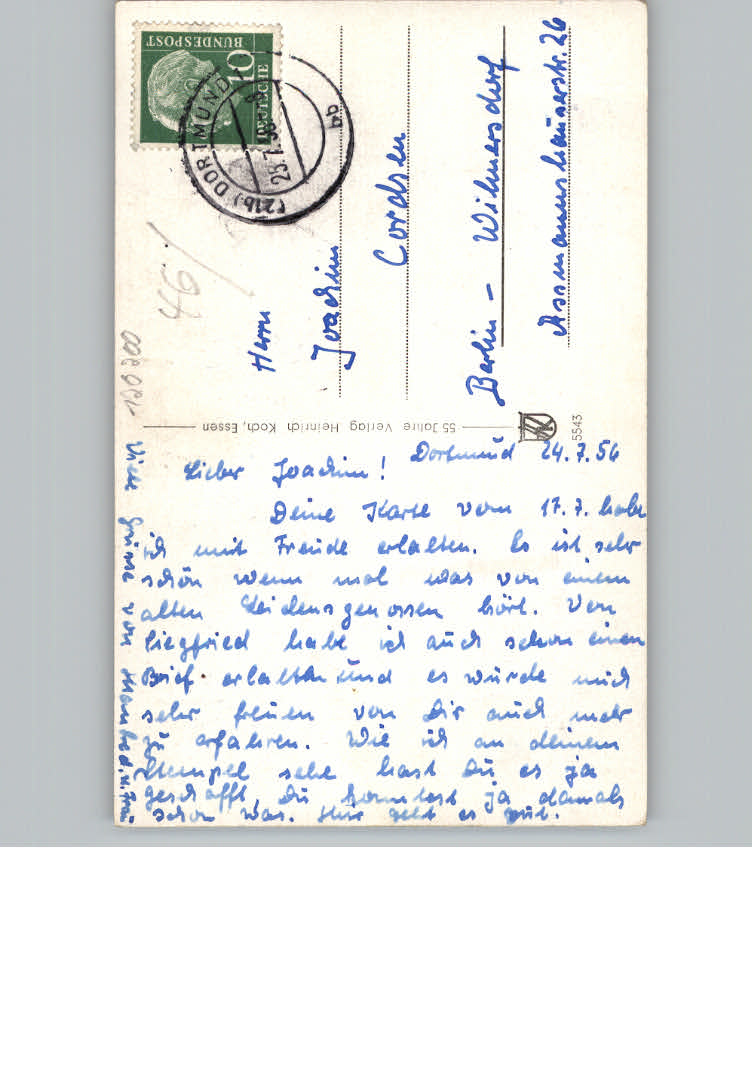 DEUTSCHE
BUNDESPOST
10
(21b) DORTMUND
25.7.56
bb
46/
Herrn
Joachim
Cordsen
Berlin - Wilmersdorf
Assmannshäuserstr. 26
55 Jahre Verlag Heinrich Koch, Essen
5543
Dortmund 24.7.56
Lieber Joachim!
Deine Karte vom 17.7. habe
ich mit Freude erhalten. Es ist sehr
schön wenn mal was von einem
alten Leidensgenossen hört. Von
Siegfried habe ich auch schon einen
Brief erhalten und es würde mich
sehr freuen von Dir auch mehr
zu erfahren. Wie ich an deinem
Stempel sehe hast Du es ja
geschafft, Du konntest ja damals
schon was. Hier geht es gut.
Viele Grüsse von